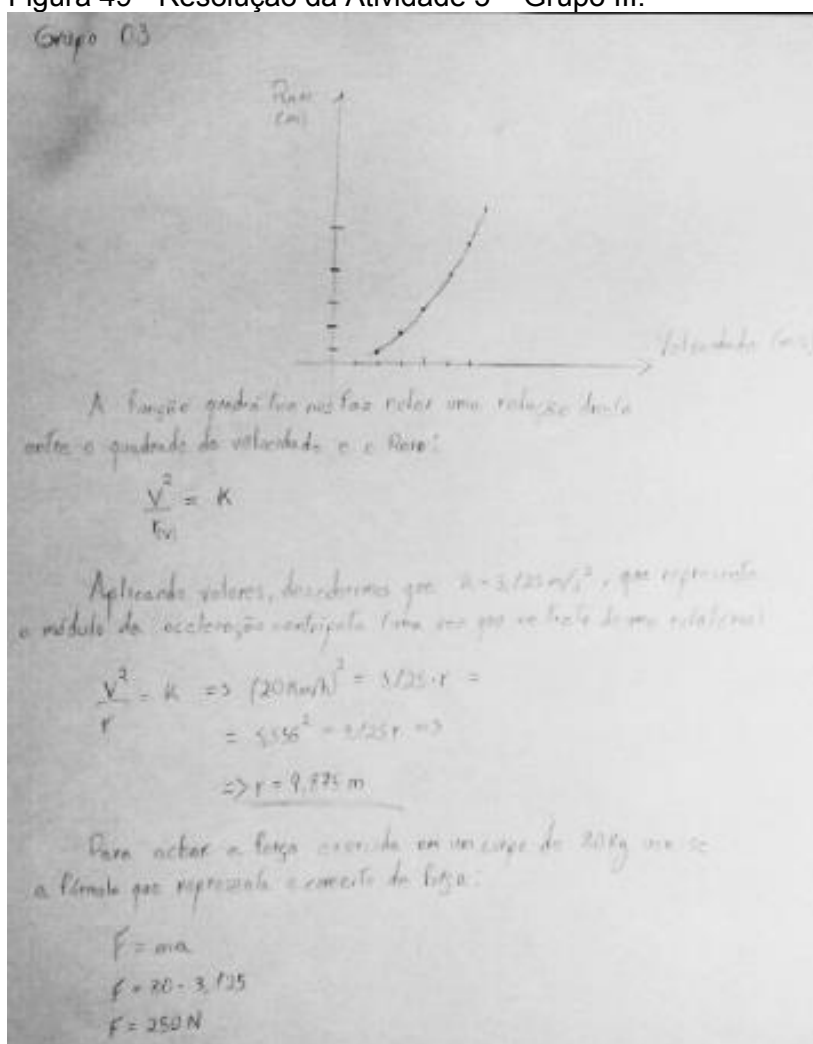 Figura 49 - Resolução da Atividade 5 – Grupo III.
Grupo 03
Raio
(m)
Velocidade (m/s)
A função quadrática nos faz notar uma relação direta
entre o quadrado da velocidade e o Raio:
V² = K
r
Aplicando valores, descobrimos que K = 3,125 m/s², que representa
o módulo da aceleração centrípeta (uma vez que se trata de uma
V² = K => (20Km/h)² = 3,125.r =
r
= 5,556² = 3,125r =>
=> r = 9,875 m
Para achar a força exercida em um corpo de 80Kg usa se
a fórmula que representa o conceito de força:
F = ma
F = 80 . 3,125
F = 250 N